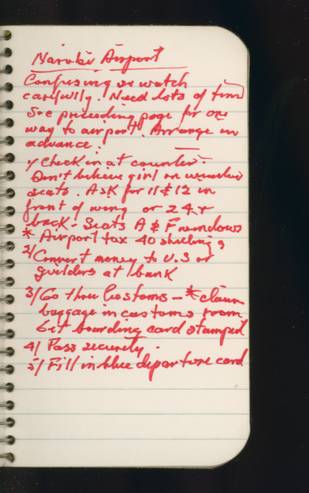 Narobi Airport
Confusing so watch
carefully. Need lots of time
See preceeding page for one
way to airport. Arrange in
advance.
1/ Check in at counter.
Don't believe girl on window
seats. Ask for 11 & 12 in
front of wing or 24 +
back - Seats A & F windows
* Airport tax 40 shillings
2/ Convert money to U.S or
guilders at bank
3/ Go thru Customs - * claim
baggage in customs room
Get boarding card stamped
4/ Pass security.
5/ Fill in blue departure card